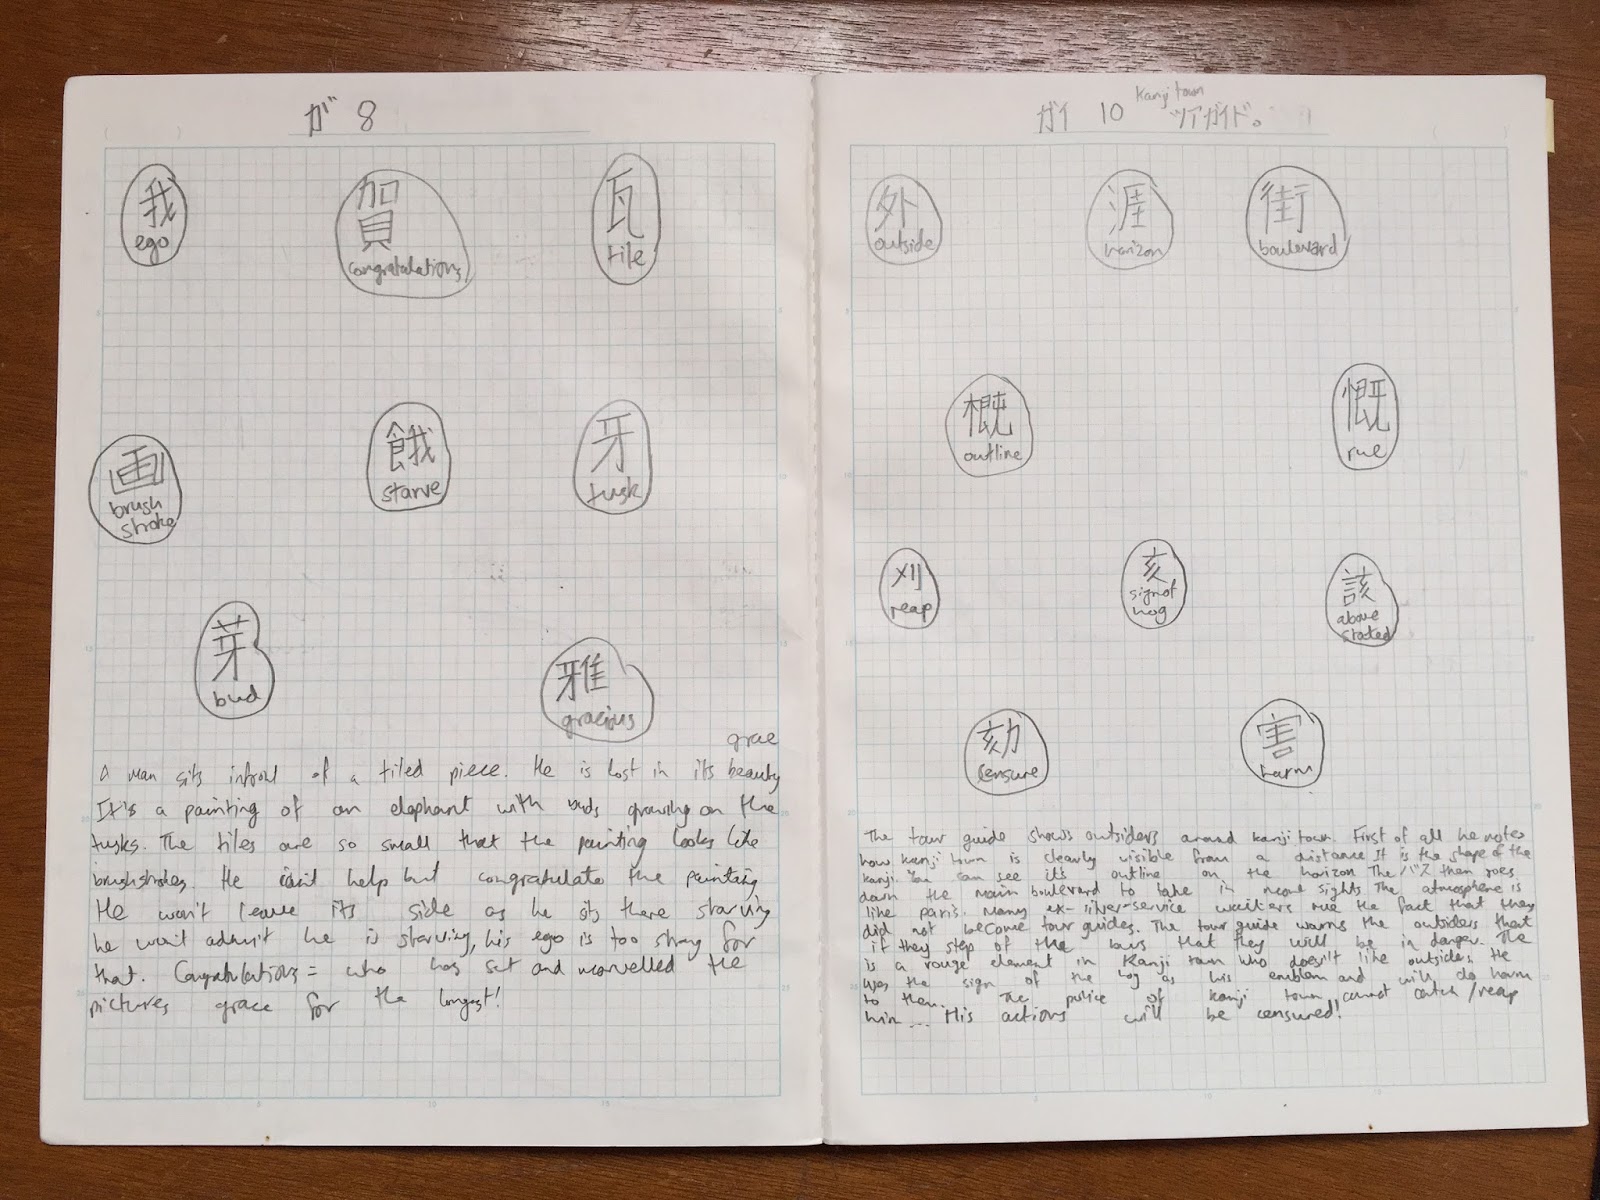 ガ 8
我
ego
賀
congratulations
瓦
tile
画
brush
stroke
餓
starve
牙
tusk
芽
bud
雅
gracious
grace
A man sits infront of a tiled piece. He is lost in its beauty
It's a painting of an elephant with buds growing on the
tusks. The tiles are so small that the painting looks like
brushstrokes. He can't help but congratulate the painting
He won't leave its side as he sits there starving
he won't admit he is starving, his ego is too strong for
that. Congratulations = who has sat and marvelled the
pictures grace for the longest!
ガイ 10 Kanji town ツアガイド。
外
outside
涯
horizon
街
boulevard
概
outline
慨
rue
刈
reap
亥
sign of
hog
該
above
stated
劾
censure
害
harm
The tour guide shows outsiders around kanji town. First of all he notes
how kanji town is clearly visible from a distance It is the shape of the
kanji. You can see it's outline on the horizon The バス then goes
down the main boulevard to take in more sights The atmosphere is
like paris. Many ex-silver-service waiters rue the fact that they
did not become tour guides. The tour guide warns the outsiders that
if they step of the bus that they will be in danger. The
is a rouge element in Kanji town who doesn't like outsiders. He
has the sign of the hog as his emblem and will do harm
to them. The police of Kanji town cannot catch/reap
him... His actions will be censured!